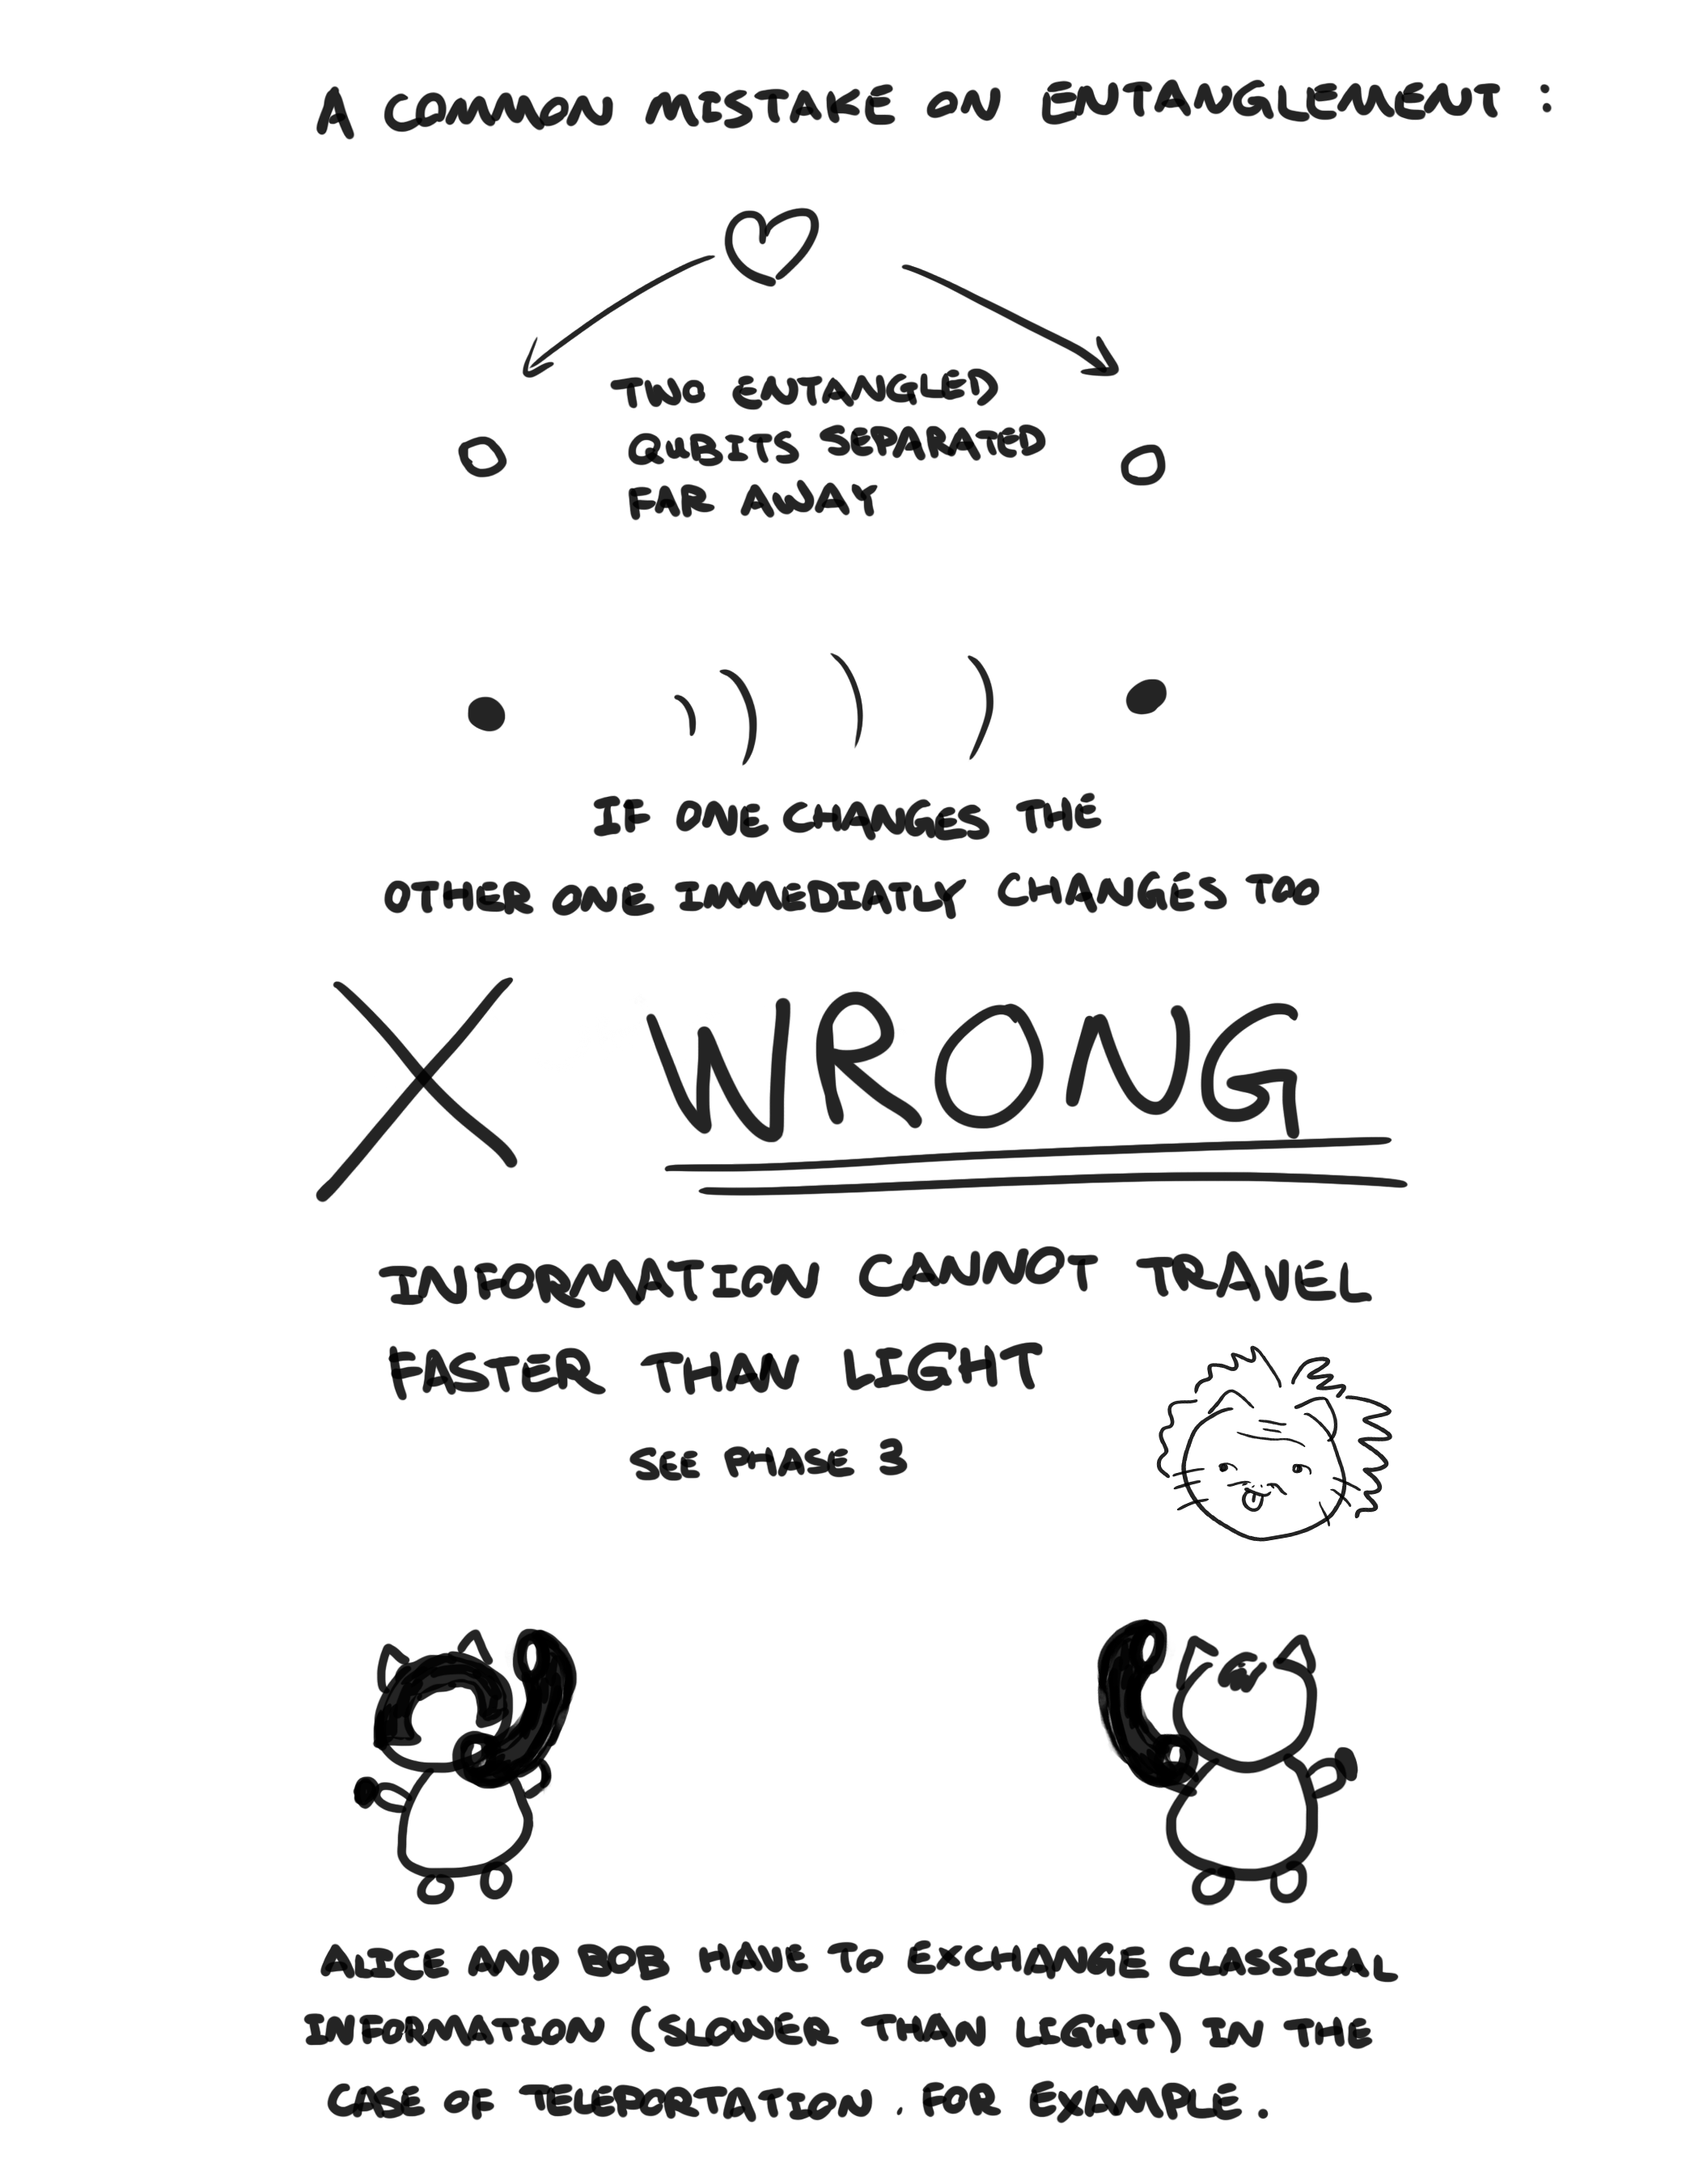 A COMMON MISTAKE ON ENTANGLEMENT :
TWO ENTANGLED
QUBITS SEPARATED
FAR AWAY
IF ONE CHANGES THE
OTHER ONE IMMEDIATLY CHANGES TOO
X WRONG
INFORMATION CANNOT TRAVEL
FASTER THAN LIGHT
SEE PHASE 3
ALICE AND BOB HAVE TO EXCHANGE CLASSICAL
INFORMATION (SLOWER THAN LIGHT) IN THE
CASE OF TELEPORTATION . FOR EXAMPLE .